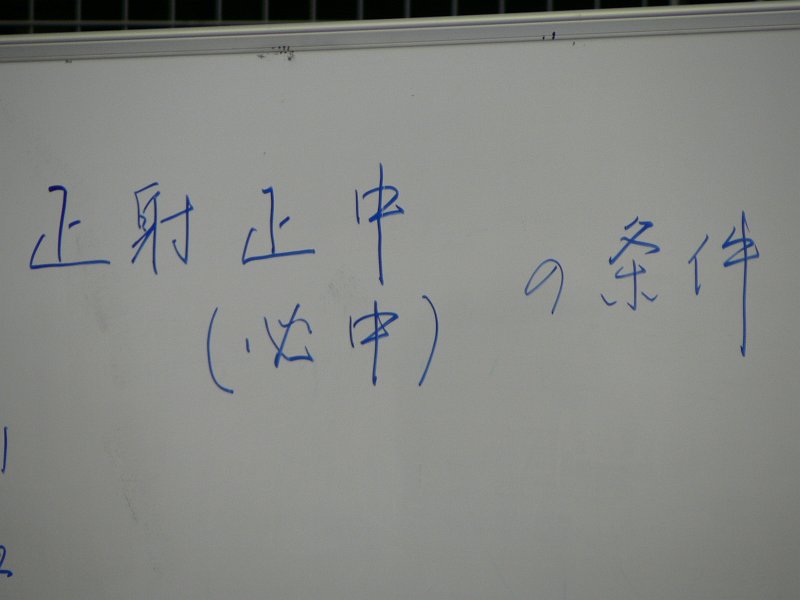 正射正中の条件
(必中)
1
2